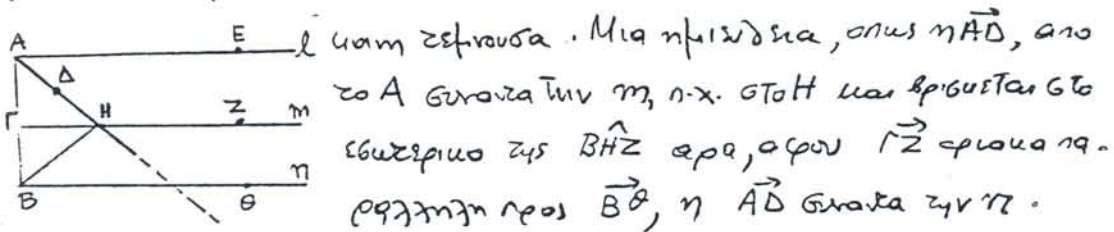 A E l και η τέμνουσα. Μια ημιευθεια, οπως η AΔ, απο
Δ
το A συναντα την m, π.χ. στο H και βρισκεται στο
Γ H Z m
εσωτερικο της BHZ αρα, αφου ΓZ οριακα πα-
B θ n
ραλληλη προς Bθ, η AΔ συναντα την n.